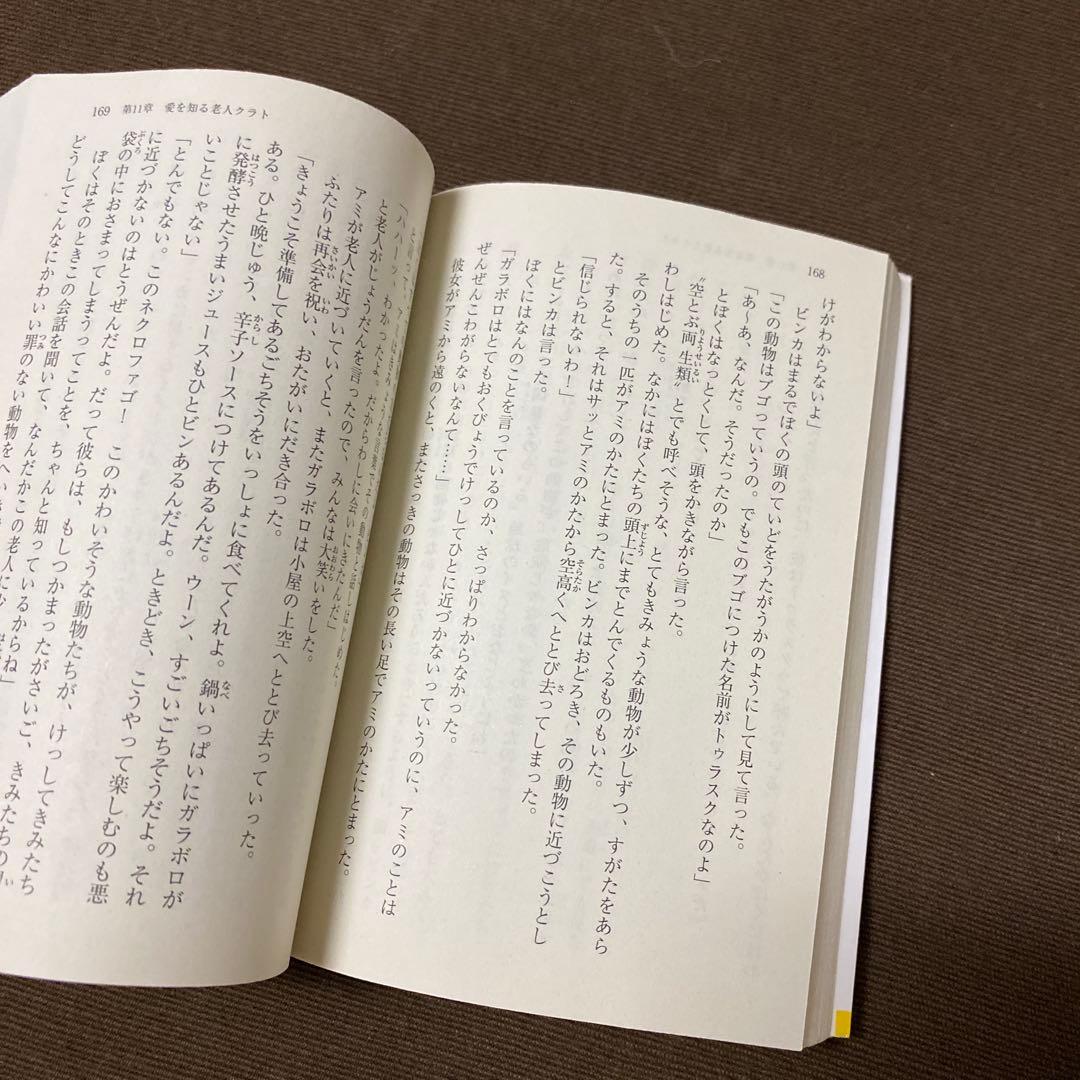 168
けがわからないよ」
ビンカはまるでぼくの頭のていどをうたがうかのようにして見て言った。
「この動物はブゴっていうの。でもこのブゴにつけた名前がトゥラスクなのよ」
「あ〜あ、なんだ。そうだったのか」
とぼくはなっとくして、頭をかきながら言った。
〝空とぶ両生類〟とでも呼べそうな、とてもきみょうな動物が少しずつ、すがたをあら
わしはじめた。なかにはぼくたちの頭上にまでとんでくるものもいた。
そのうちの一匹がアミのかたにとまった。ビンカはおどろき、その動物に近づこうとし
た。すると、それはサッとアミのかたから空高くへととび去ってしまった。
「信じられないわ！」
とビンカは言った。
ぼくにはなんのことを言っているのか、さっぱりわからなかった。
「ガラボロはとてもおくびょうでけっしてひとに近づかないっていうのに、アミのことは
ぜんぜんこわがらないなんて……」
彼女がアミから遠のくと、またさっきの動物はその長い足でアミのかたにとまった。
169 第11章 愛を知る老人クラト
「ハハーッ、わかったよ。だからわしに会いにきたんだ」
と老人がじょうだんを言ったので、みんなは大笑いをした。
アミが老人に近づいていくと、またガラボロは小屋の上空へととび去っていった。
ふたりは再会を祝い、おたがいにだき合った。
「きょうこそ準備してあるごちそうをいっしょに食べてくれよ。鍋いっぱいにガラボロが
ある。ひと晩じゅう、辛子ソースにつけてあるんだ。ウーン、すごいごちそうだよ。それ
に発酵させたうまいジュースもひとビンあるんだよ。ときどき、こうやって楽しむのも悪
いことじゃない」
「とんでもない。このネクロファゴ！　このかわいそうな動物たちが、けっしてきみたち
に近づかないのはとうぜんだよ。だって彼らは、もしつかまったがさいご、きみたちの
袋の中におさまってしまうってことを、ちゃんと知っているからね」
ぼくはそのときこの会話を聞いて、なんだかこの老人に少
どうしてこんなにかわいい罪のない動物を